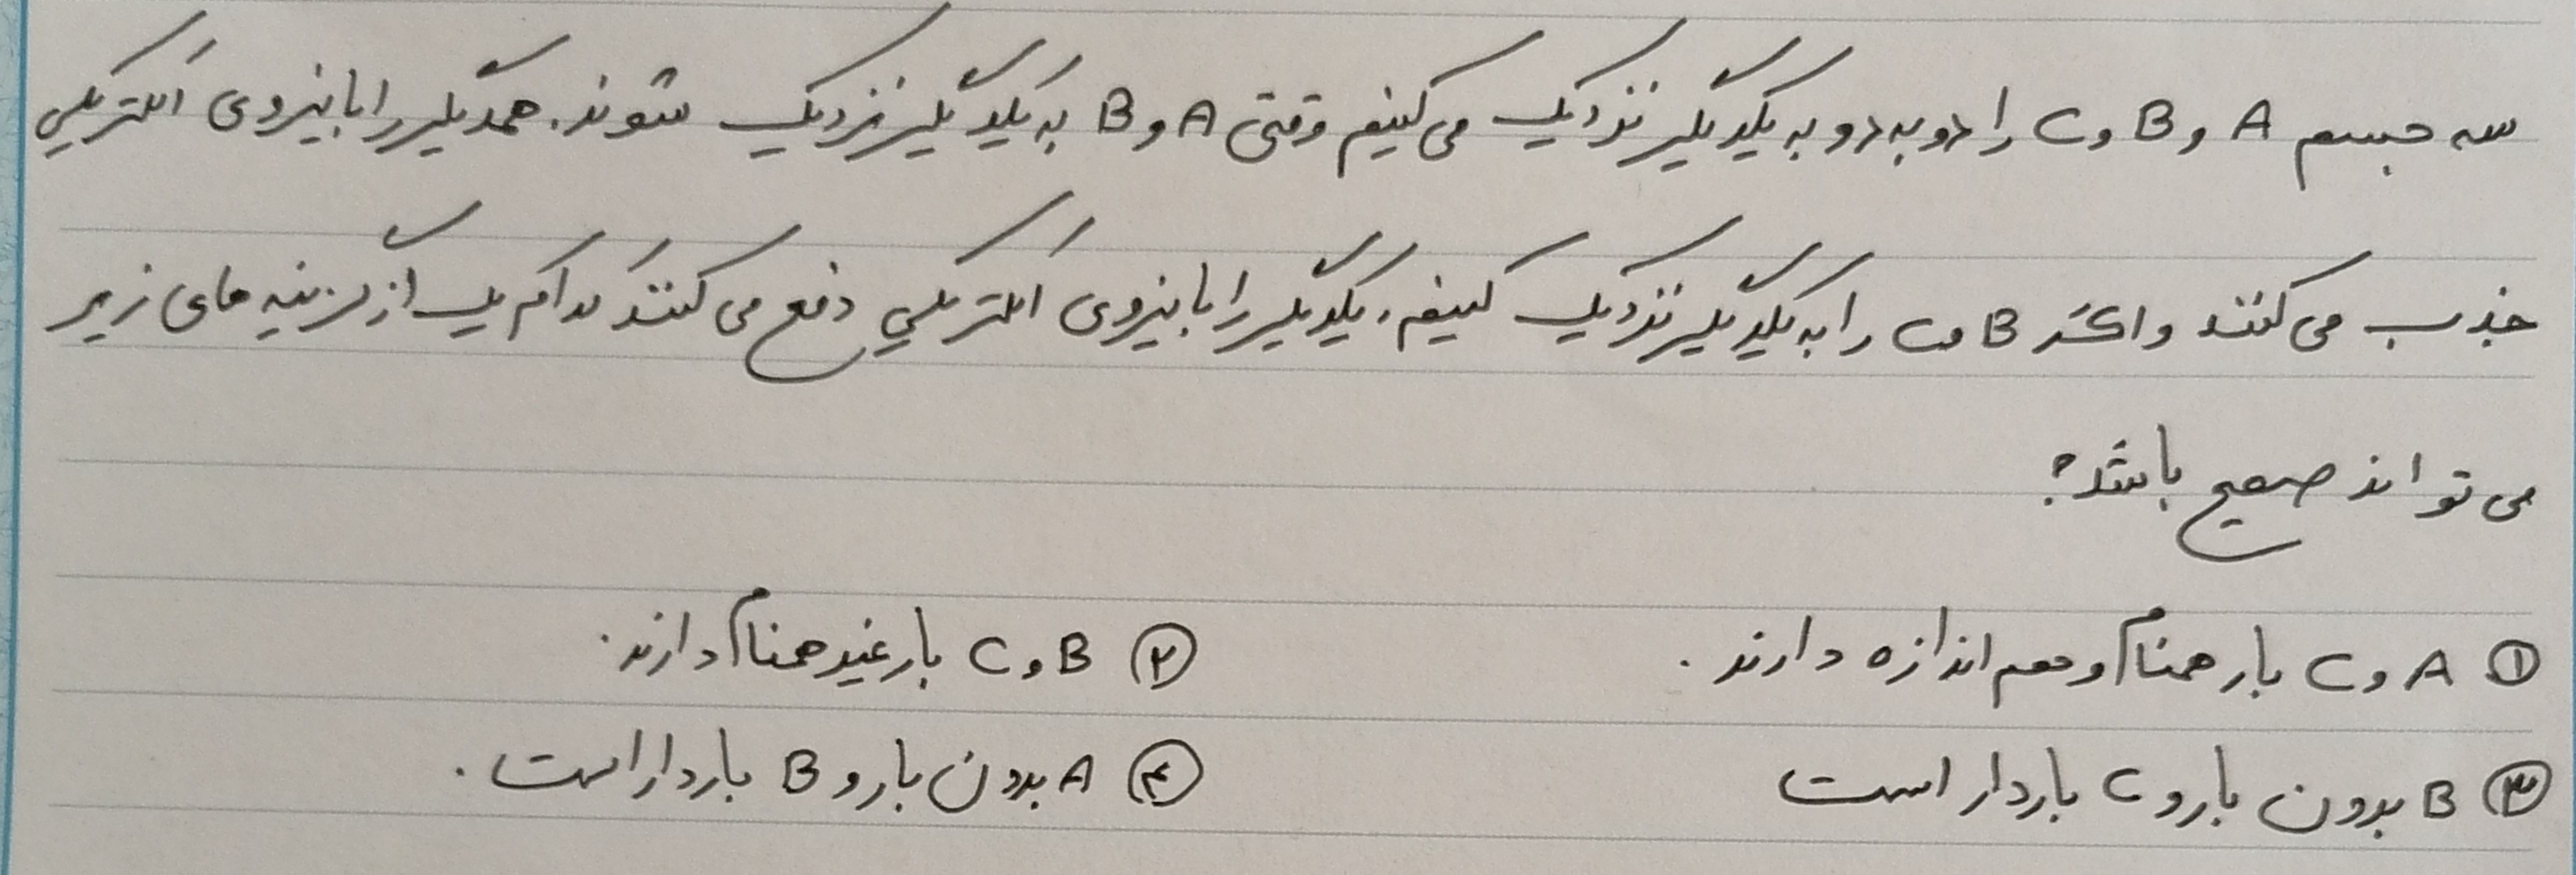 سه جسم A و B و C را دو به دو به یکدیگر نزدیک می کنیم وقتی A و B به یکدیگر نزدیک شوند. همدیگر را با نیروی الکتریکی
جذب می کنند و اگر B و C را به یکدیگر نزدیک کنیم، یکدیگر را با نیروی الکتریکی دفع می کنند کدام یک از گزینه های زیر
می تواند صحیح باشد؟
① A و C بار همنام و هم اندازه دارند. ② B و C بار غیر همنام دارند.
③ B بدون بار و C باردار است ④ A بدون بار و B باردار است.